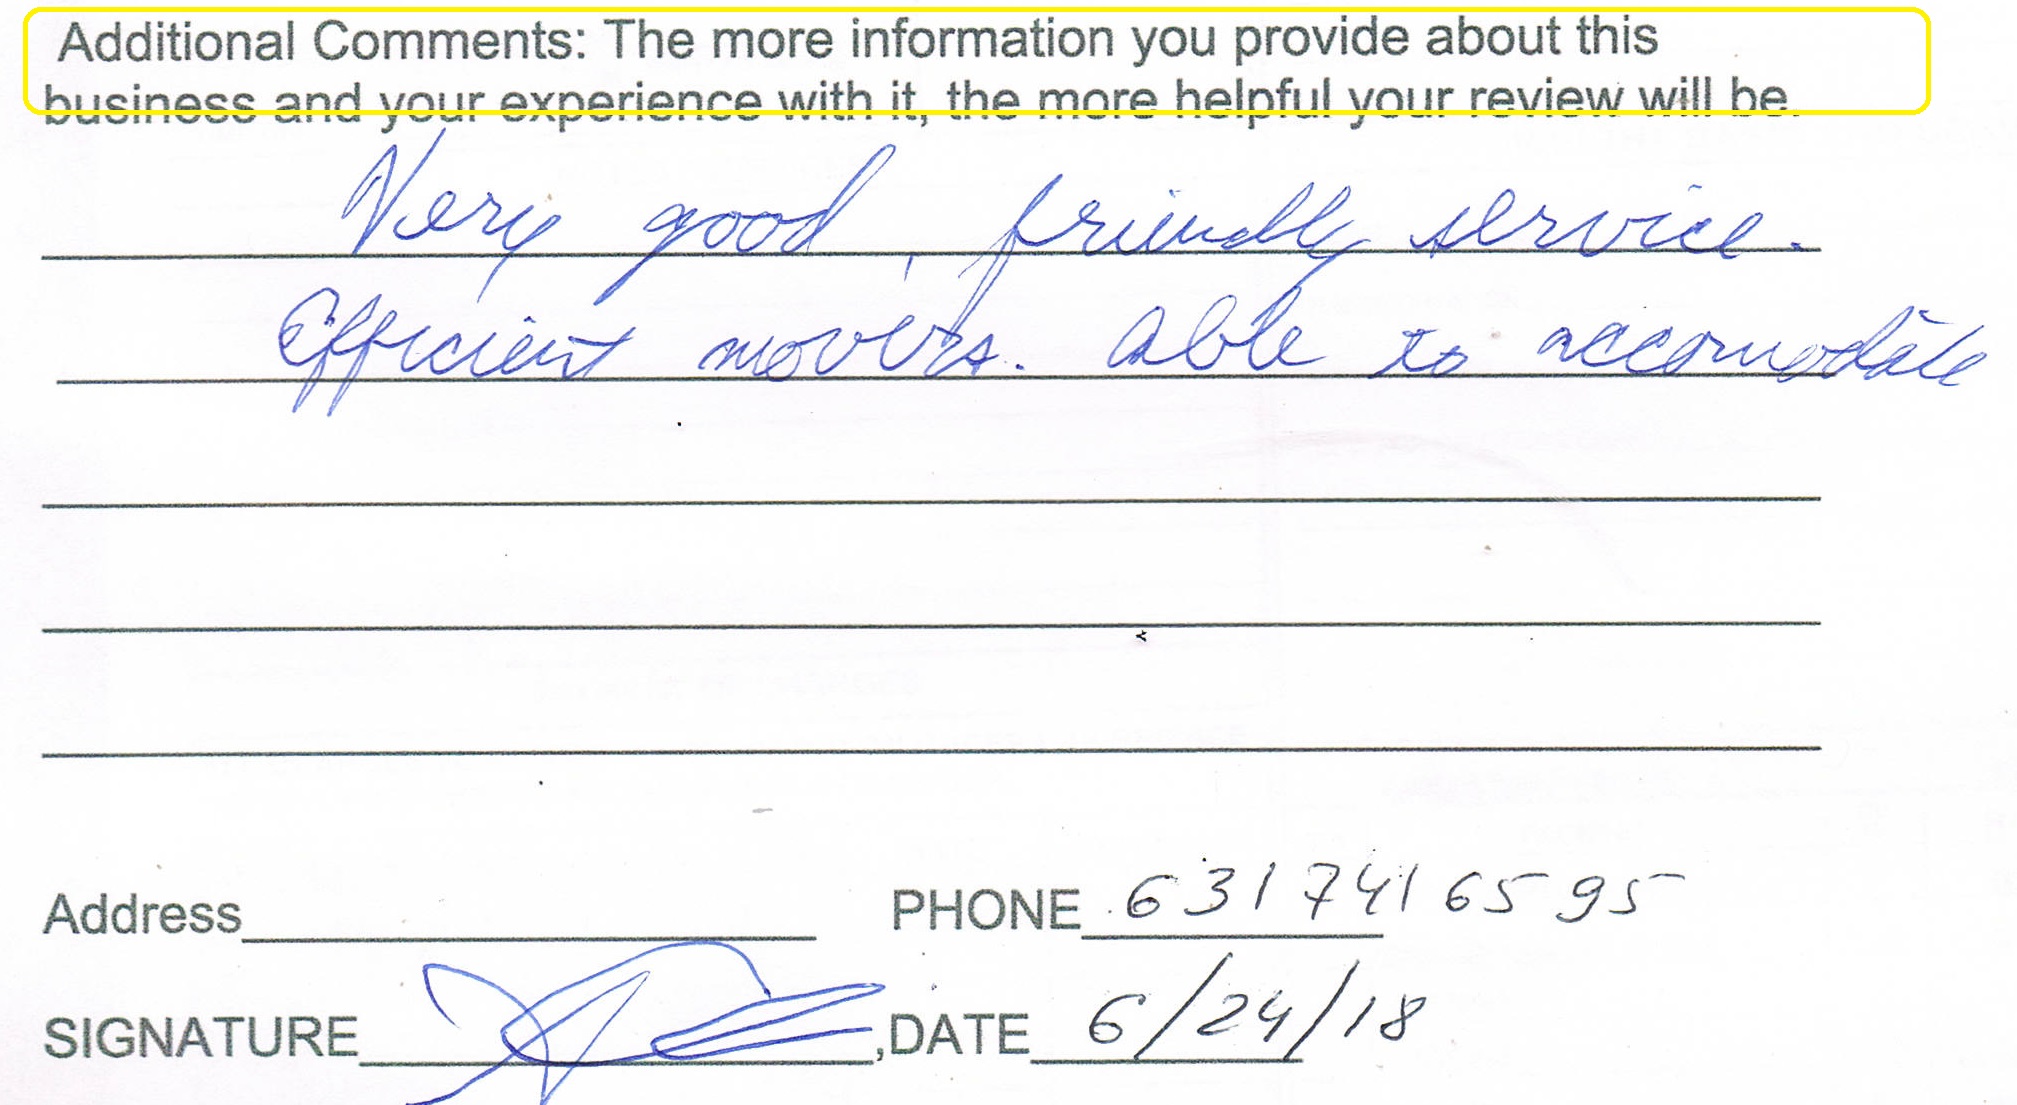 Additional Comments: The more information you provide about this
business and your experience with it, the more helpful your review will be.
Very good, friendly service.
Efficient movers. Able to accomodate
Address PHONE 631 741 6595
SIGNATURE ,DATE 6/24/18